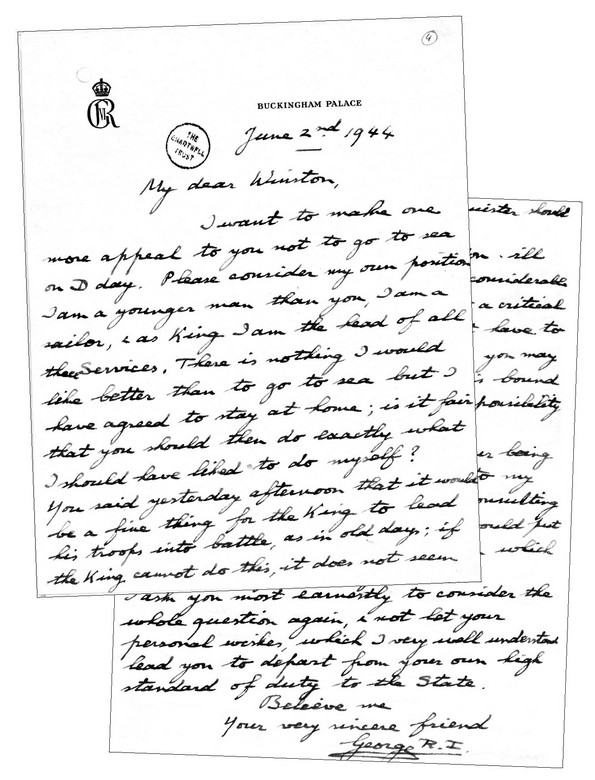 4
BUCKINGHAM PALACE
THE CHARTWELL TRUST
June 2nd 1944
My dear Winston,
I want to make one
more appeal to you not to go to sea
on D day. Please consider my own position
I am a younger man than you, I am a
sailor, & as King I am the head of all
the Services. There is nothing I would
like better than to go to sea but I
have agreed to stay at home; is it fair
that you should then do exactly what
I should have liked to do myself?
You said yesterday afternoon that it would
be a fine thing for the King to lead
his troops into battle, as in old days; if
the King cannot do this, it does not seem
should
ill
considerable
a critical
have to
you may
bound
being
to my
put
which
I ask you most earnestly to consider the
whole question again, & not let your
personal wishes, which I very well understand
lead you to depart from your own high
standard of duty to the State.
Believe me
Your very sincere friend
George R.I.